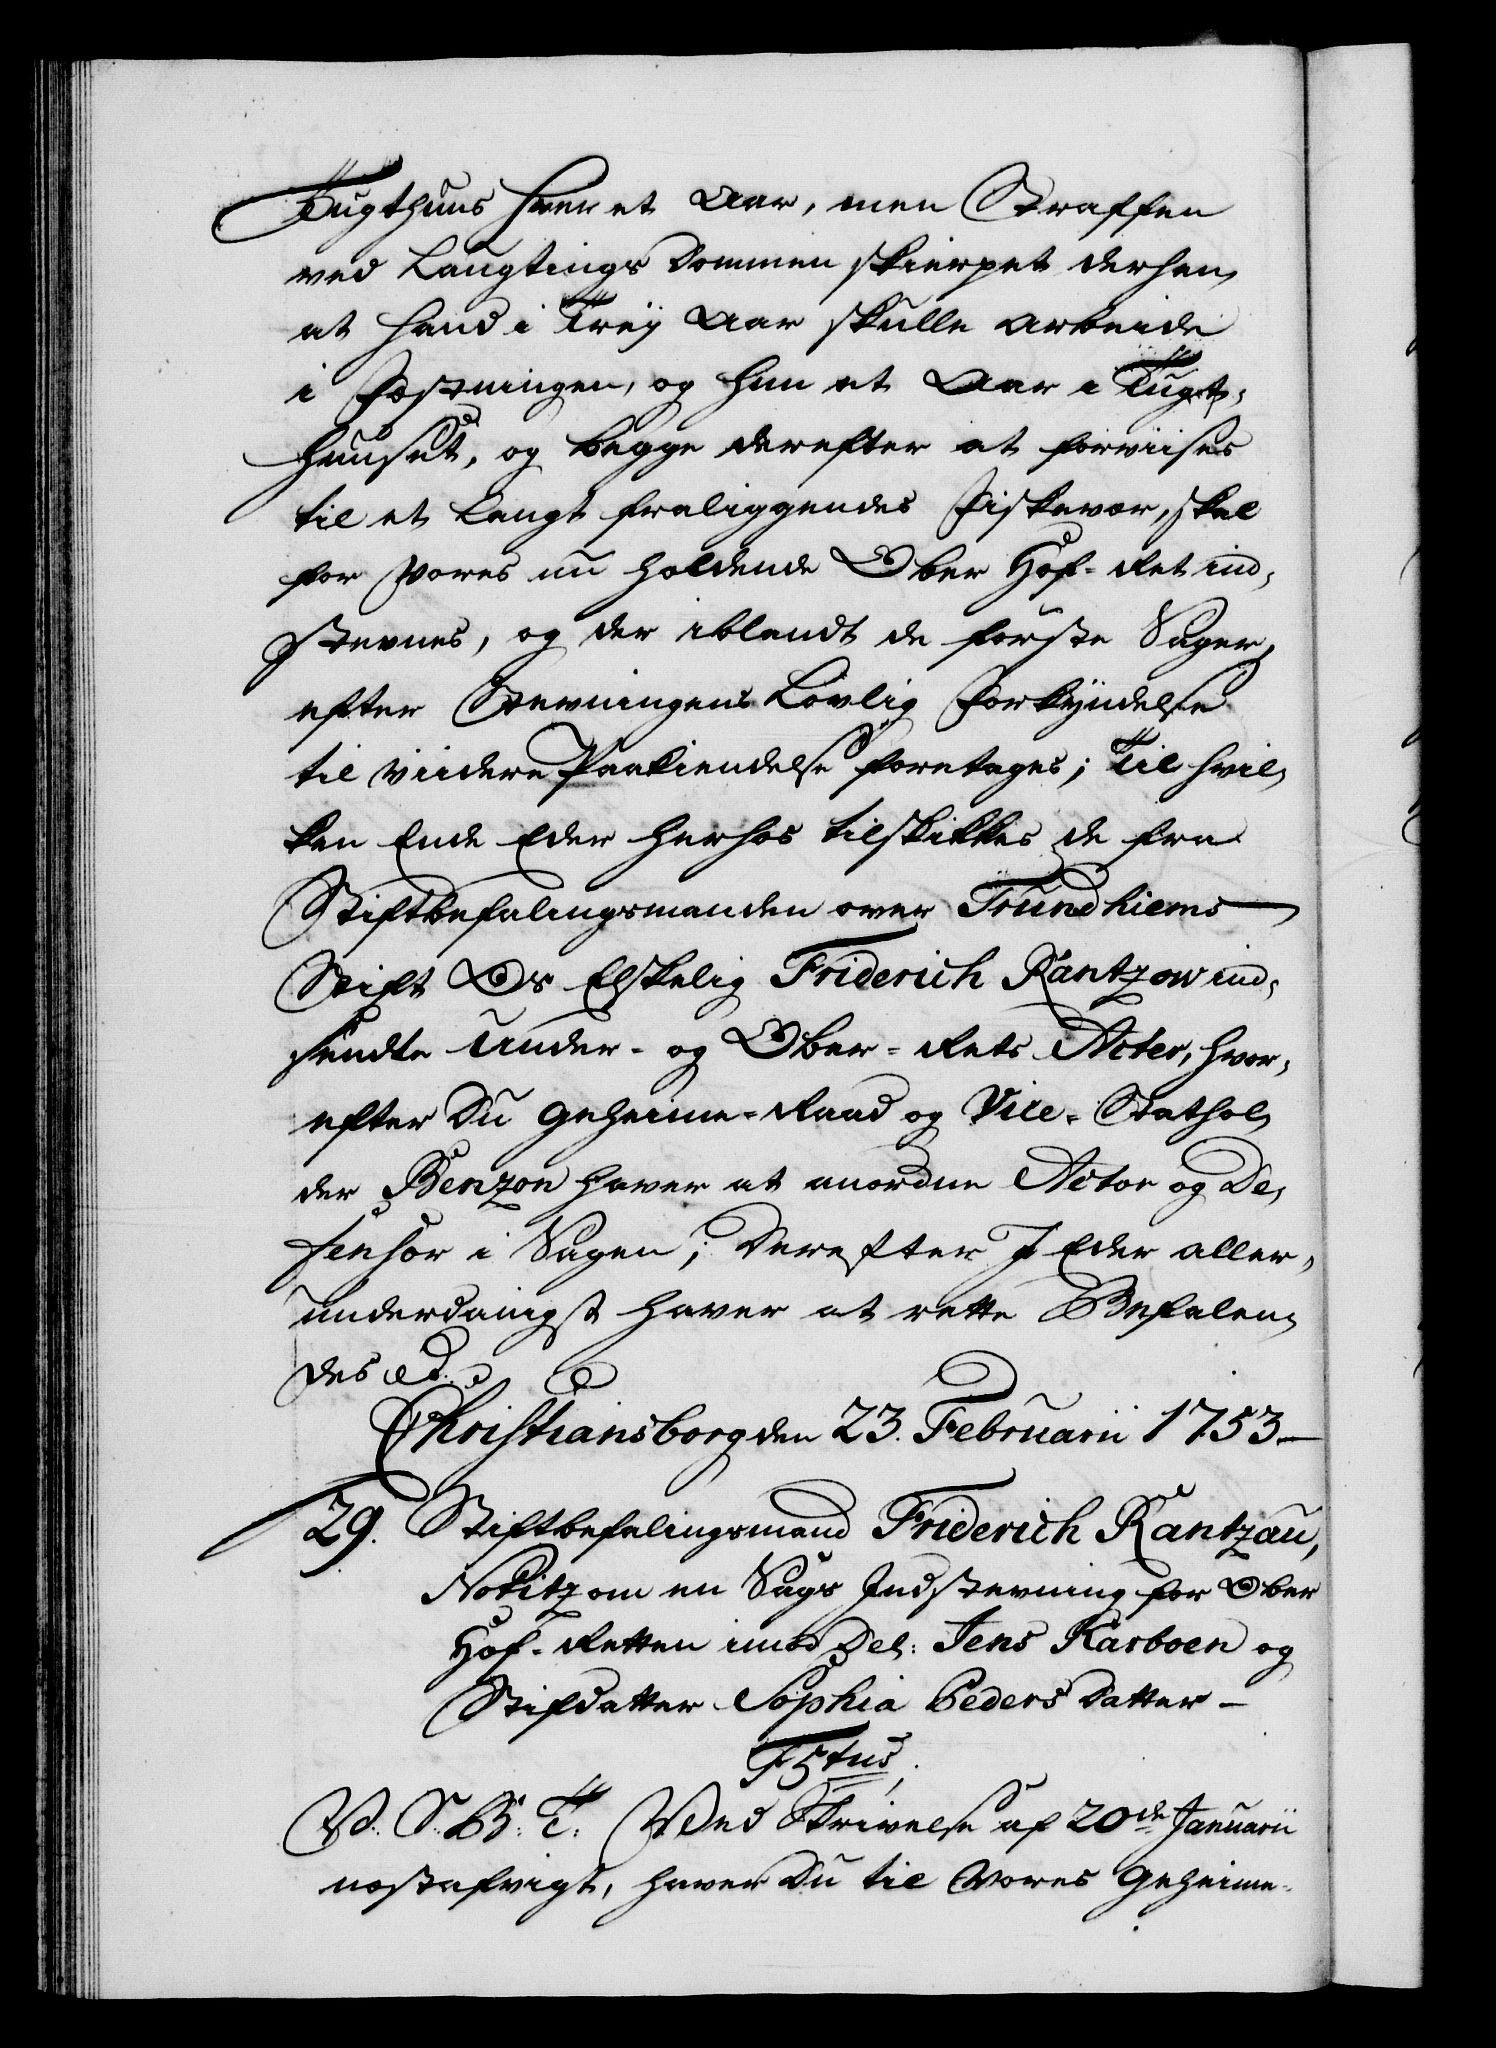 Tugthuus hver et Aar, men Straffen
ved Laugtings Dommen skierpet derhen,
at hand i Trej Aar skulle arbeide
i Fæstningen, og hun et Aar i Tugt-
huuset, og begge derefter at forviises
til et langt fraliggendes Fiskevær, skal
for Vores nu holdende Ober Hof-Ret ind-
stevnes, og der iblandt de første Sager,
efter Stevningens Lovlig Forkyndelse
til viidere Paakiendelse foretages; Til hvil-
ken Ende Eder herhos tilskikkes de fra
Stiftbefalingsmanden over Trundhiems
Stift Os Elskelig Friderich Rantzow ind-
sendte Under- og Ober-Rets Acter, hvor-
efter Du Geheime-Raad og Vice-Stathol-
der Benzon haver at anordne Actor og De-
fensor i Sagen; Derefter I Eder aller-
underdanigst haver at rette Befalen-
des etc.
Christiansborg den 23. Februarii 1753
29. Stiftbefalingsmand Friderich Rantzau,
Notitz om en Sags Indstevning for Ober
Hof-Retten imod Del: Jens Karboen og
Stifdatter Sophia Peders Datter
F5tus.
V. S. B. T. Ved Skrivelse af 20de Januarii
næstafvigt, haver Du til Vores Geheime-